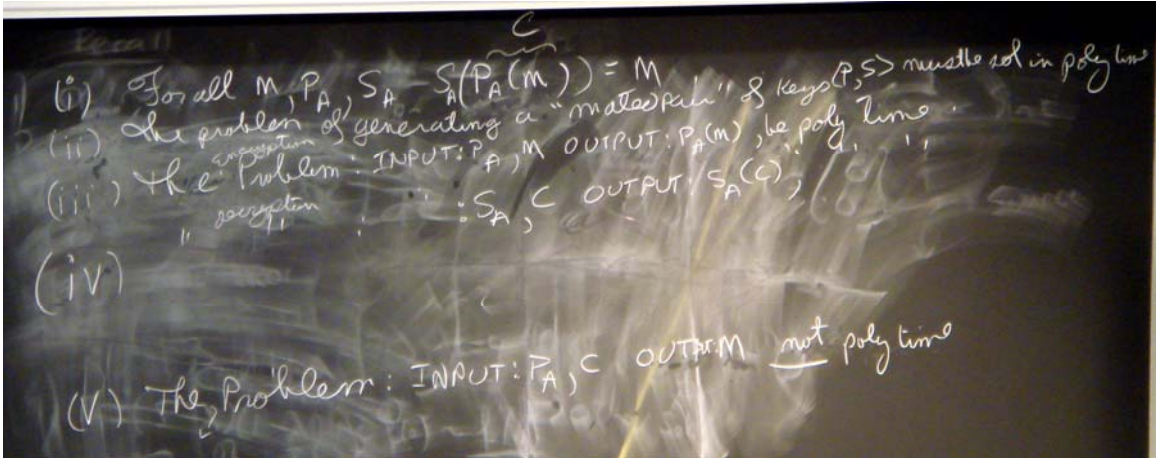 Recall
C
(i) For all M, P_A, S_A S_A(P_A(M)) = M
(ii) The problem of generating a "mated pair" of keys <P, S> must be sol in poly time
(iii) The encryption Problem: INPUT: P_A, M OUTPUT: P_A(M), be poly time.
" decryption " : : S_A, C OUTPUT: S_A(C), " " "
(iv)
(V) The Problem: INPUT: P_A, C OUTPUT: M not poly time